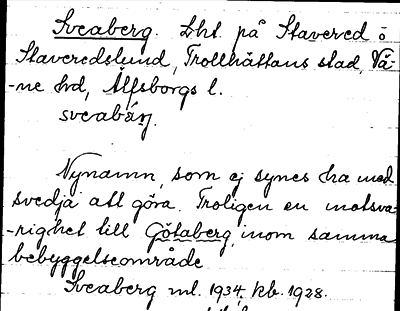 Sveaberg. Lht. på Stavered o
Staveredslund, Trollhättans stad, Vä-
-ne hd, Älfsborgs l.
sveabärj.
Nynamn, som ej synes ha med
svedja att göra. Troligen en motsva-
-righet till Götaberg, inom samma
bebyggelseområde
Sveaberg ml. 1934, kb. 1928.